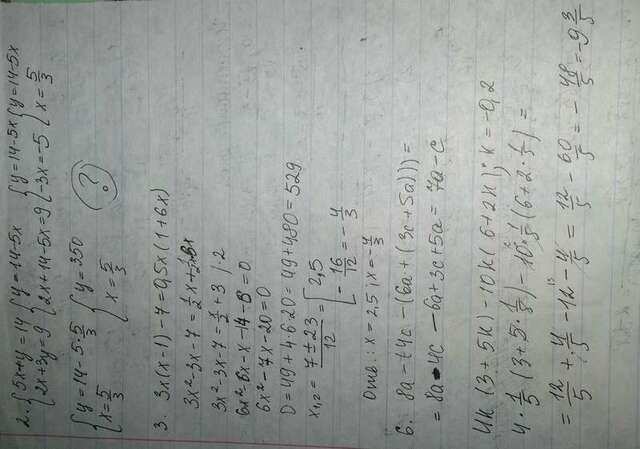 2. { 5x+y=14 { y=14-5x { y=14-5x
2x+3y=9 { 2x+14-5x=9 { -3x=-5 { x=5/3
{ y=14-5·5/3 { y=350 (?)
x=5/3 { x=5/3
3. 3x(x-1)-7=0,5x(1+6x)
3x²-3x-7=1/2x
3x²-3x-7=x/2+3 | 2
6x²-6x-x-14-6=0
6x²-7x-20=0
D=49+4·6·20=49+480=529
x1,2=7±23/12=[2,5
[-16/12=-4/3
Отв: x=2,5; x=-4/3
6. 8a-(4c-(6a+(3c+5a)))=
=8a-4c-6a+3c+5a=7a-c
4к(3+5к)-10к(6+2к); к=-0,2
4·1/5(3+5·1/5)-10·1/5(6+2·1/5)=
=12/5+4/5-12-4/5=12/5-60/5=-48/5=-9 3/5